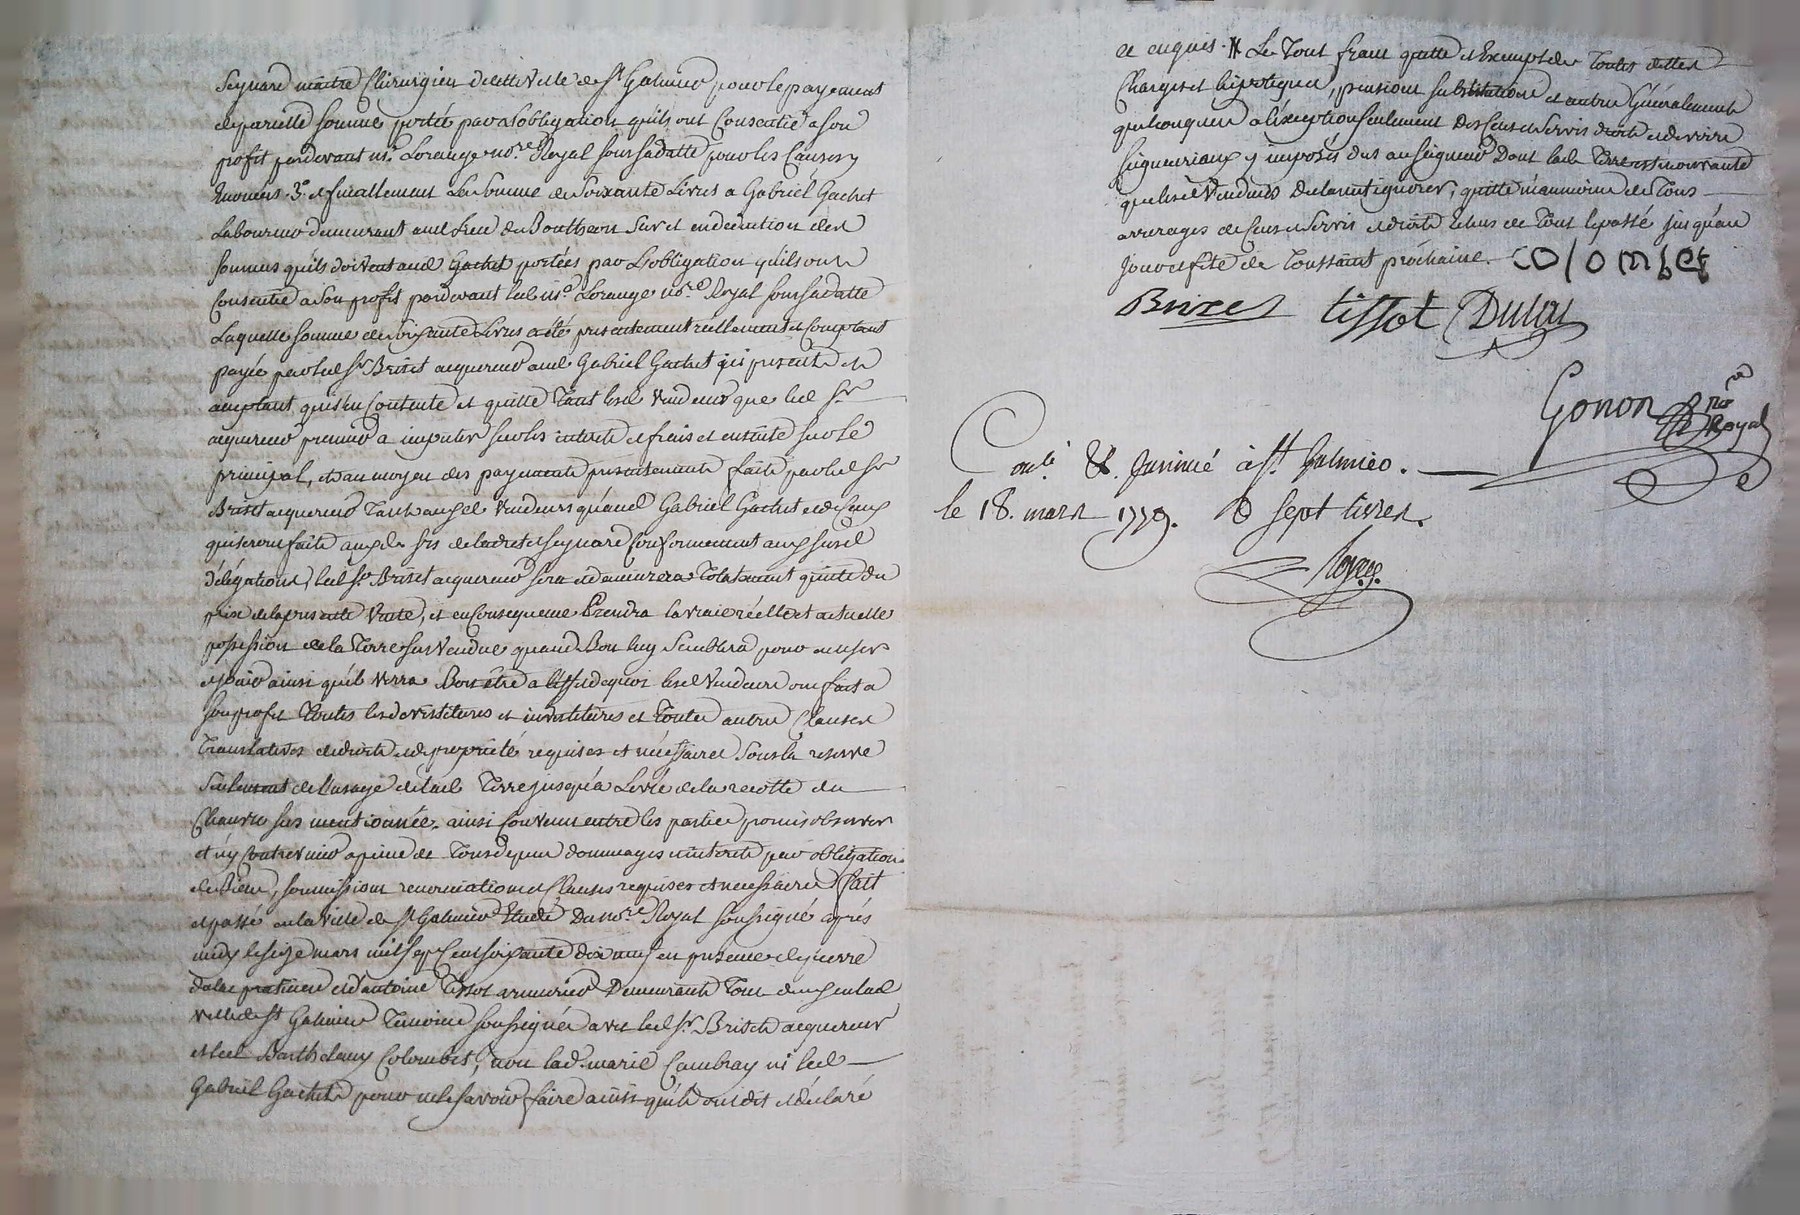 Seynard maitre Chirurgien de cette Ville de St Galmier pour le payement
de pareille somme portée par as obligation qu'ils ont Consentie a son
profit pardevant me. Lorange nore. Royal sous sa datte pour les Causes y
Enoncés. 3o. et finallement La somme de soixante Livres a Gabriël Gachet
Laboureur demeurant aud Lieu de Bouthéon sur et en deduction des
sommes qu'ils doivent aud Gachet portées par L'obligation qu'ils ont
Consentie a son profit pardevant led me. Lorange nore. Royal sous sa datte
Laquelle somme de soixante Livres a été presentement réellement et Comptant
payée par led Sr Briset acquereur aud Gabriel Gachet ici present et
acceptant, qui s'en Contente et quitte Tant lesd Vendeurs que led Sr
acquereur premier a imputer sur les interets et frais et ensuite sur le
principal, et au moyen des payements presentement faits par led Sr
Briset acquereur Tant auxd Vendeurs qu'aud Gabriel Gachet et de Ceux
qui seront faits auxd Srs et Seynard Conformement aux susd
délégations, led Sr Briset acquereur sera et demeurera Totalement quitte du
prix de la presente Vente, et en Consequence Prendra la vraie réelle et actuelle
possession de la Terre sus Vendue quand Bon luy Semblera pour en user
et jouir ainsi qu'il verra Bon être a l'effet de quoi lesd Vendeurs ont fait a
son profit Toutes les devestitures et investitures et Toutes autres Clauses
Translatives de droits et de propriété requises et nécessaires Sous la reserve
Seulement de l'usage de lad Terre jusqu'a Levée de la recolte du
Chanvre sus mentionnée. ainsi Convenu entre les parties, promis observer
et n'y Contrevenir a peine de Tous depens dommages interets par obligation
de Biens, soumissions renonciations et Clauses requises et necessaires fait
et passé en la ville de St Galmier Etude Du nore. Royal soussigné après
midy le seize mars mil sept Cent soixante dix neuf en presence de pierre
Dulac praticien et d'antoine Tissot armurier Demeurants Tous deux en lad
ville de St Galmier Temoins soussignés avec led Sr. Briset acquereur
et led Barthelemy Colombet, non lad. marie Cambray ni led
Gabriel Gachet pour ne le savoir faire ainsi qu'ils ont dit et déclaré
de ce enquis. Le Tout franc quitte et Exempt de Toutes dettes
Charges et hipoteques, pensions substitutions et autres Généralement
quelconques a l'exception seulement Des Cens et Servis droits et devoirs
seigneuriaux y imposés dus au seigneur Dont lad Terre est mouvante
que lesd Vendeurs Declarent ignorer, quitte néanmoins de Tous
arrerages de Cens et Servis et droits Echus de Tout le passé jusqu'au
jour et fête de Toussaint prochaine. colombet
Brizet Tissot Dulac
Gonon nore Royal
Conlé & Insinué à St. Galmier.
le 18. mars 1779. R sept livres.